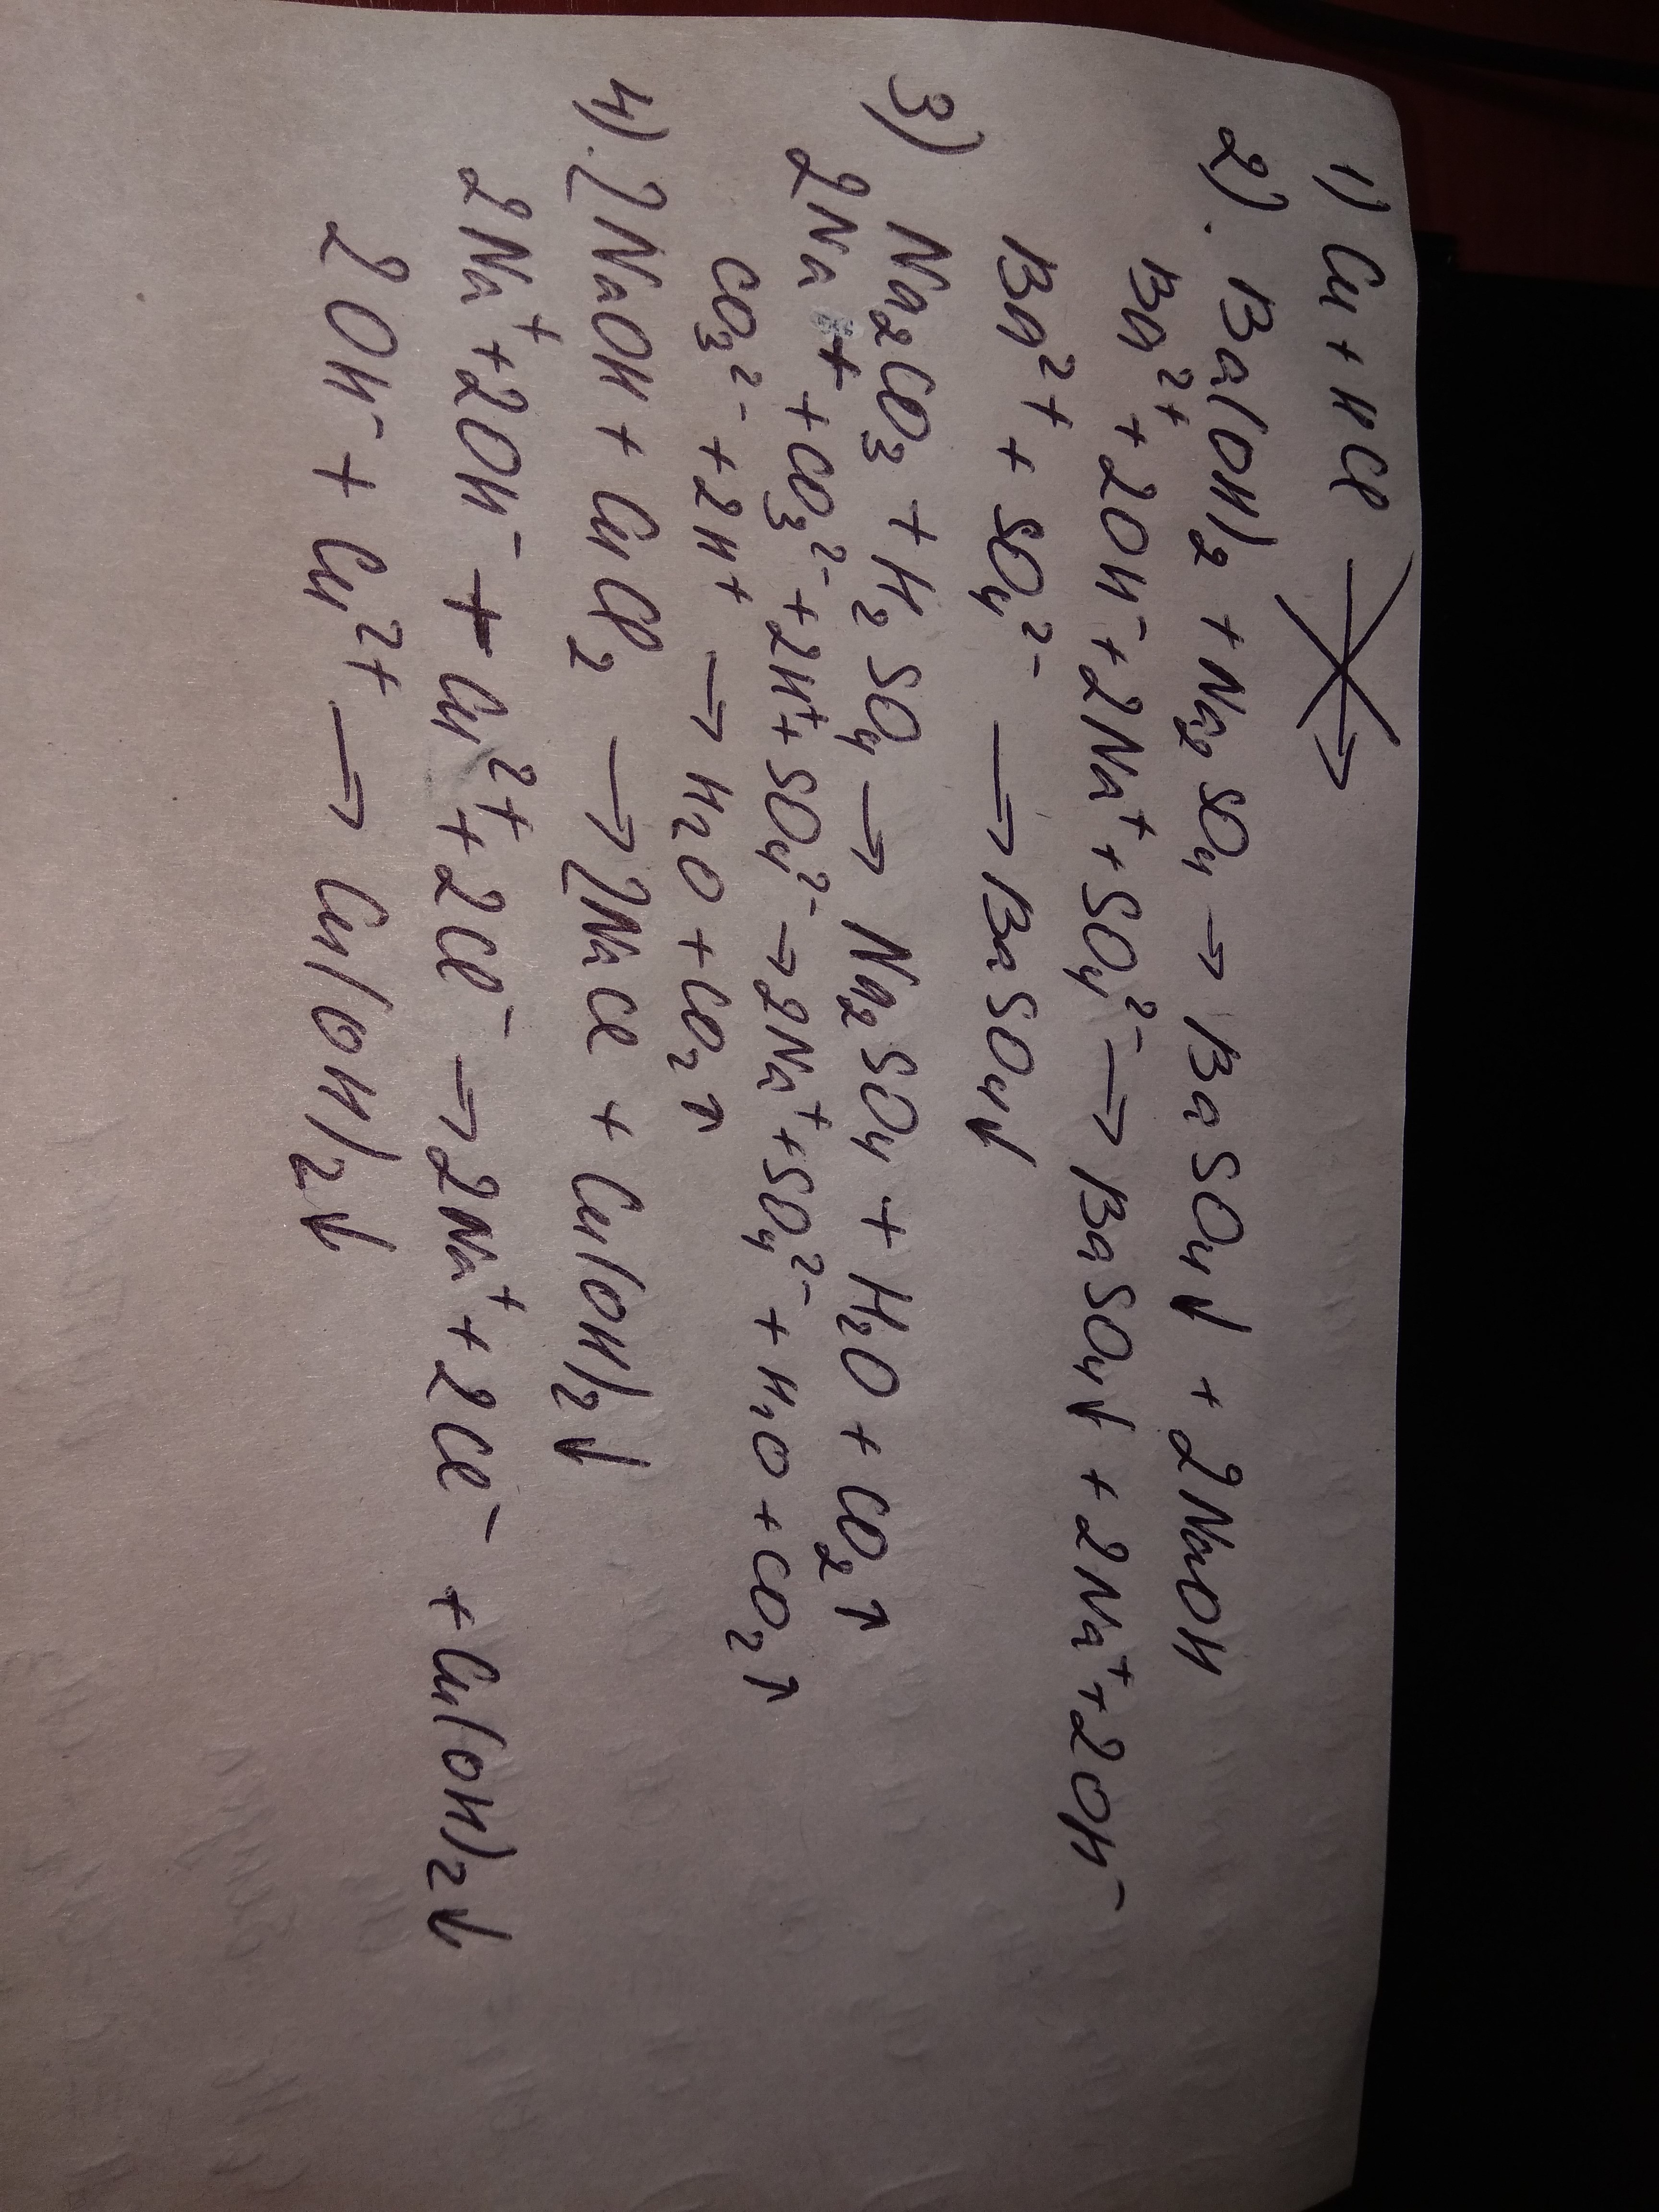 1) Cu + HCl ↛
2). Ba(OH)₂ + Na₂SO₄ → BaSO₄↓ + 2NaOH
Ba²⁺ + 2OH⁻ + 2Na⁺ + SO₄²⁻ → BaSO₄↓ + 2Na⁺ + 2OH⁻
Ba²⁺ + SO₄²⁻ → BaSO₄↓
3) Na₂CO₃ + H₂SO₄ → Na₂SO₄ + H₂O + CO₂↑
2Na⁺ + CO₃²⁻ + 2H⁺ + SO₄²⁻ → 2Na⁺ + SO₄²⁻ + H₂O + CO₂↑
CO₃²⁻ + 2H⁺ → H₂O + CO₂↑
4). 2NaOH + CuCl₂ → 2NaCl + Cu(OH)₂↓
2Na⁺ + 2OH⁻ + Cu²⁺ + 2Cl⁻ → 2Na⁺ + 2Cl⁻ + Cu(OH)₂↓
2OH⁻ + Cu²⁺ → Cu(OH)₂↓